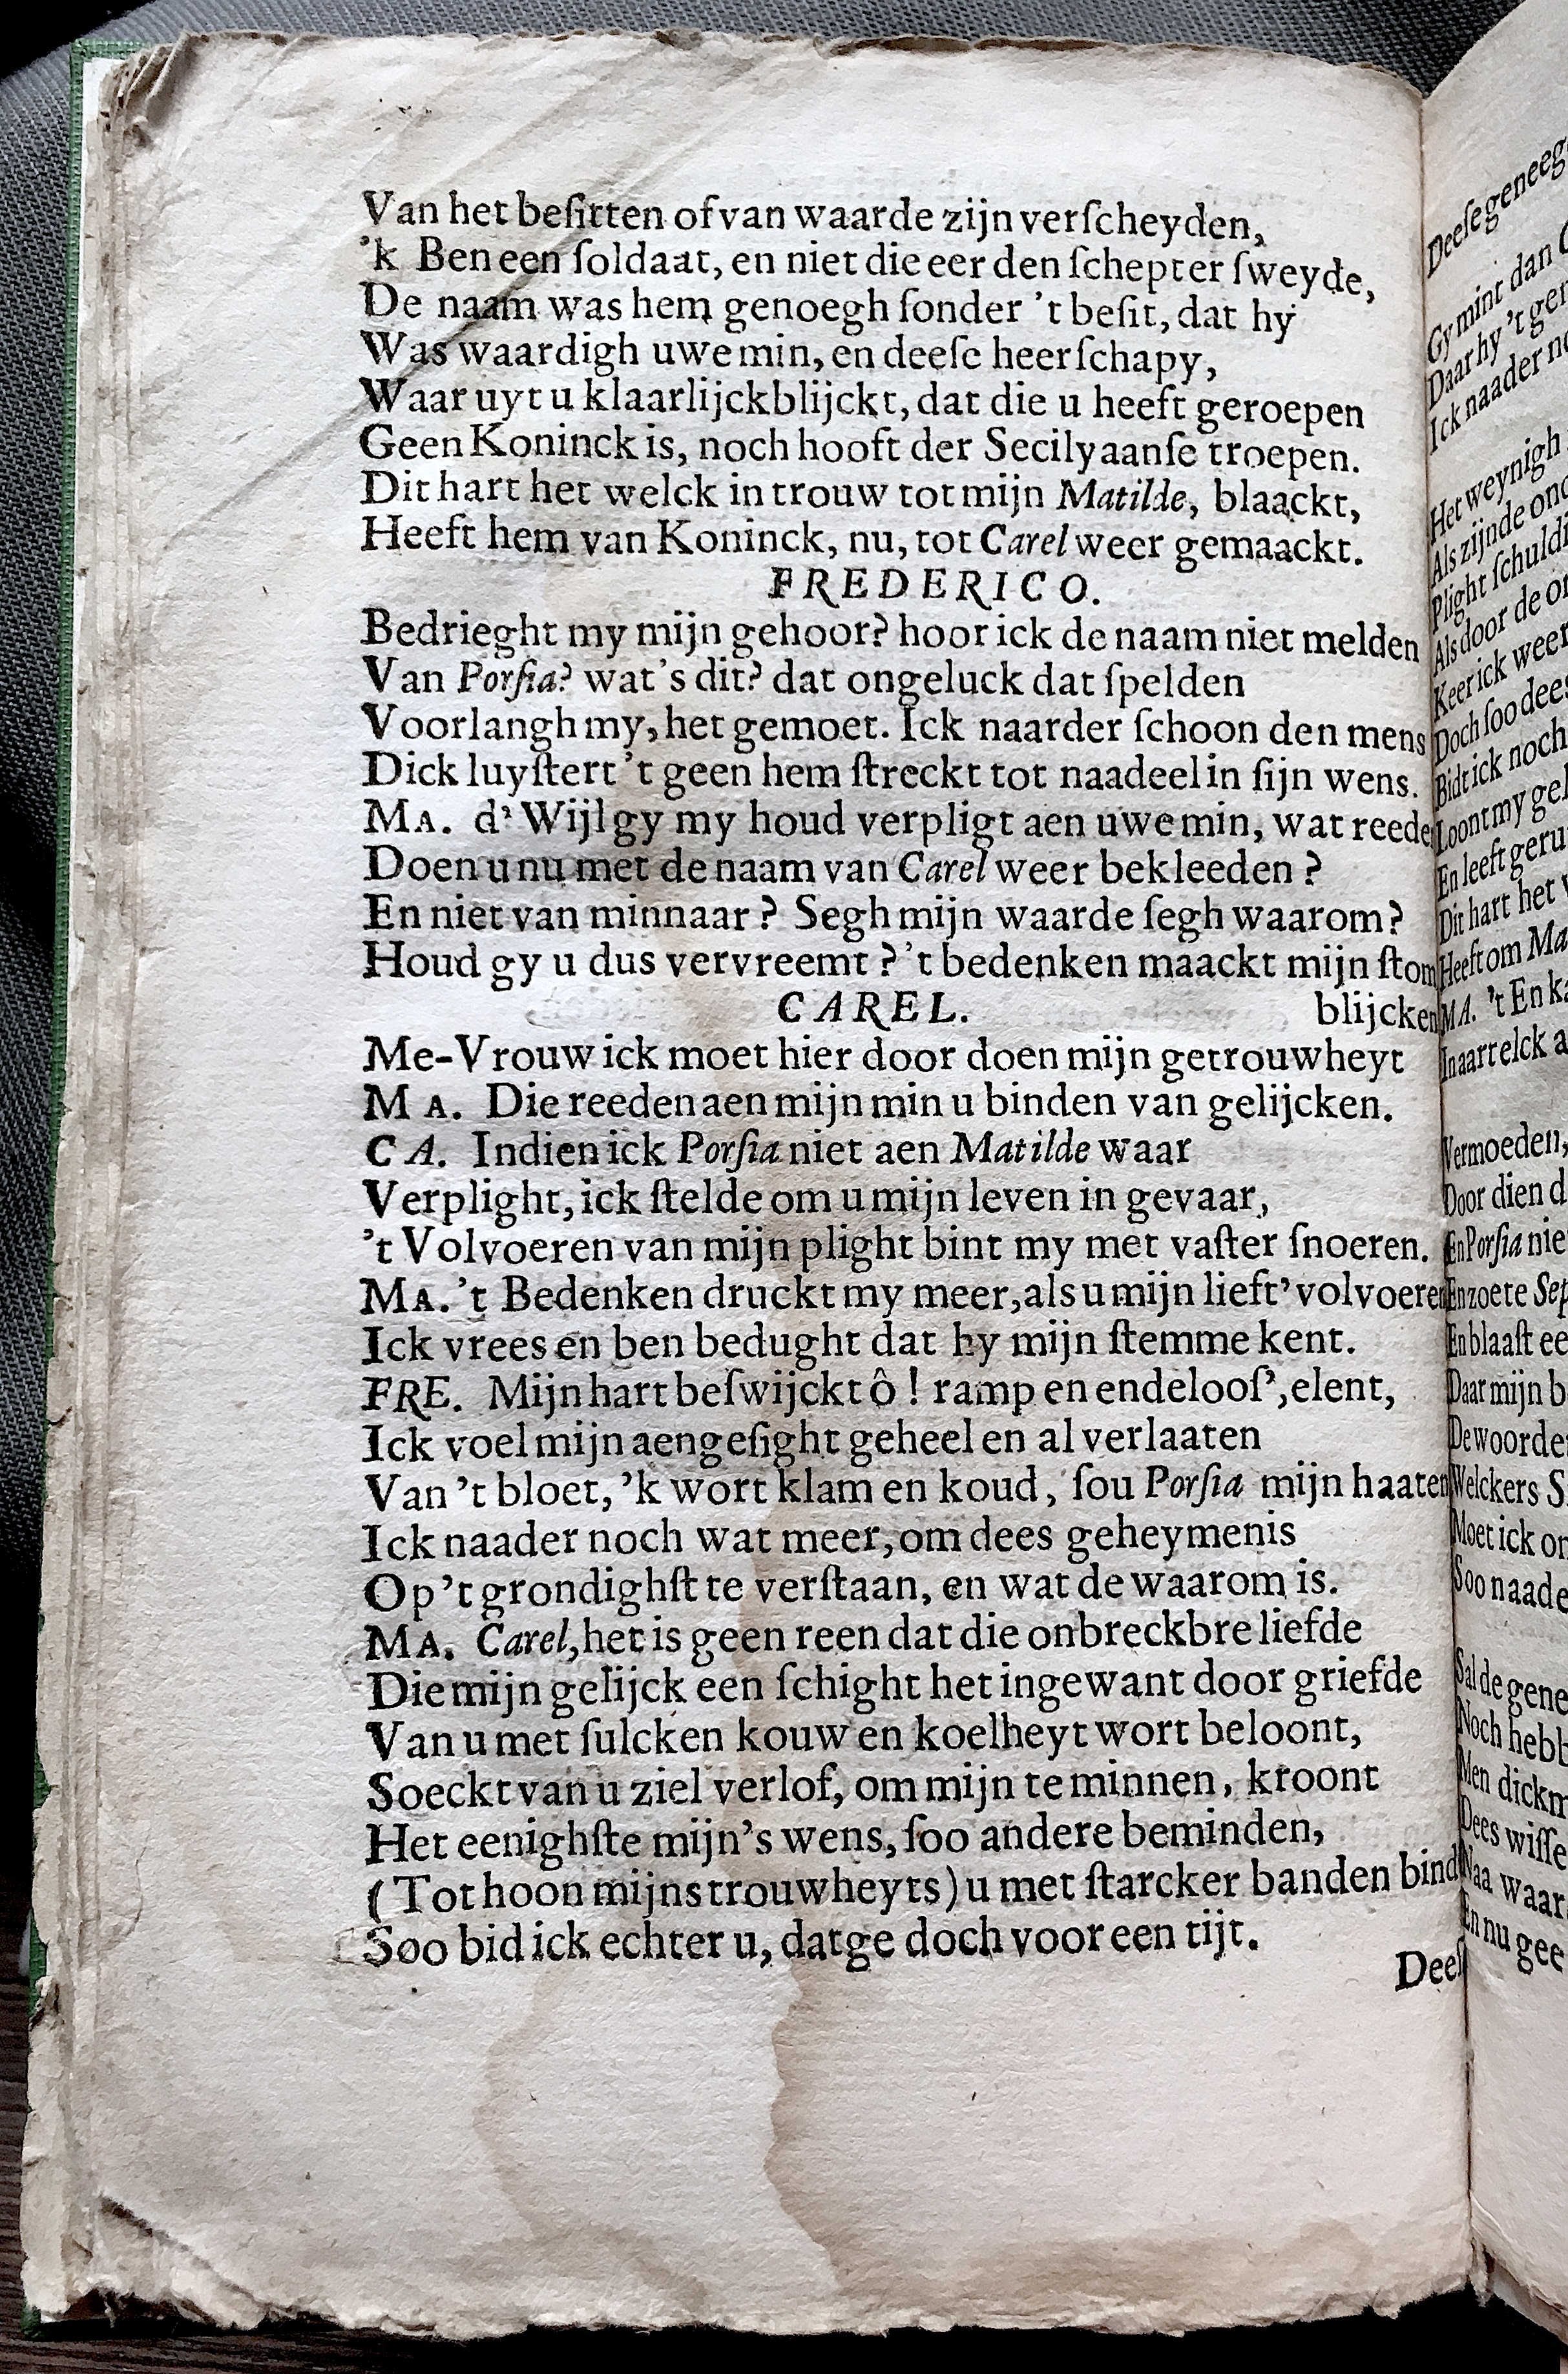 Van het beſitten of van waarde zijn verſcheyden,
’k Ben een ſoldaat, en niet die eer den ſchepter ſweyde,
De naam was hem genoegh ſonder ’t beſit, dat hy
Was waardigh uwe min, en deeſe heerſchapy,
Waar uyt u klaarlijck blijckt, dat die u heeft geroepen
Geen Koninck is, noch hooft der Secilyaanſe troepen.
Dit hart het welck in trouw tot mijn Matilde, blaackt,
Heeft hem van Koninck, nu, tot Carel weer gemaackt.
FREDERICO.
Bedrieght my mijn gehoor? hoor ick de naam niet melden
Van Porſia? wat's dit? dat ongeluck dat ſpelden
Voorlangh my, het gemoet. Ick naarder ſchoon den mens
Dick luyſtert 't geen hem ſtreckt tot naadeel in ſijn wens.
MA. d’ Wijl gy my houd verpligt aen uwe min, wat reede
Doen u nu met de naam van Carel weer bekleeden?
En niet van minnaar? Segh mijn waarde ſegh waarom?
Houd gy u dus vervreemt? 't bedenken maackt mijn ſtom
CAREL. blijcken
Me-Vrouw ick moet hier door doen mijn getrouwheyt
MA. Die reeden aen mijn min u binden van gelijcken.
CA. Indien ick Porſia niet aen Matilde waar
Verplight, ick ſtelde om u mijn leven in gevaar,
’t Volvoeren van mijn plight bint my met vaſter ſnoeren.
MA. ’t Bedenken druckt my meer, als u mijn lieft’ volvoeren
Ick vrees en ben bedught dat hy mijn ſtemme kent.
FRE. Mijn hart beſwijckt ô! ramp en endelooſ’, elent,
Ick voel mijn aengeſight geheel en al verlaaten
Van ’t bloet, ’k wort klam en koud, ſou Porſia mijn haaten
Ick naader noch wat meer, om dees geheymenis
Op ’t grondighſt te verſtaan, en wat de waarom is.
MA. Carel, het is geen reen dat die onbreckbre liefde
Die mijn gelijck een ſchight het ingewant door griefde
Van u met ſulcken kouw en koelheyt wort beloont,
Soeckt van u ziel verlof, om mijn te minnen, kroont
Het eenighſte mijn’s wens, ſoo andere beminden,
(Tot hoon mijns trouwheyts) u met ſtarcker banden bind
Soo bid ick echter u, dat ge doch voor een tijt.
Deeſ
Deeſe geneeg
Gy mint dan
Daar hy ’t gen
Ick naader no
Het weynigh
Als zijnde ond
Plight ſchuldi
Als door de on
Keer ick weer
Doch ſoo dees
Bidt ick noch
Loont my gel
En leeft geru
Dit hart het w
Heeft om Ma
MA. ’t En ka
In aart elck a
Vermoeden,
Door dien d
En Porſia nie
En zoete Sep
En blaaſt ee
Daar mijn b
De woorde
Welckers S
Moet ick on
Soo naade
Sal de gene
Noch hebb
Men dickm
Dees wiſſe
Naa waar
En nu gee